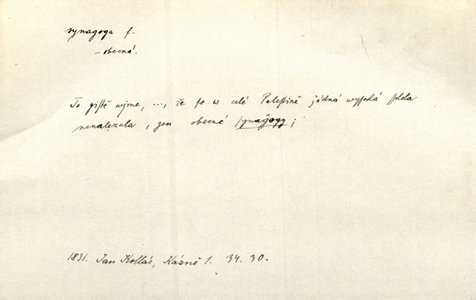 synagoga f.
– obecná.
To giſtě wjme, ..., že ſe w celé Paleſtině žádná wyſoká ſſkola
nenalezala, gen obecné ſynagogy;
1831. Jan Kollár, Kázně 1. 34. 30.